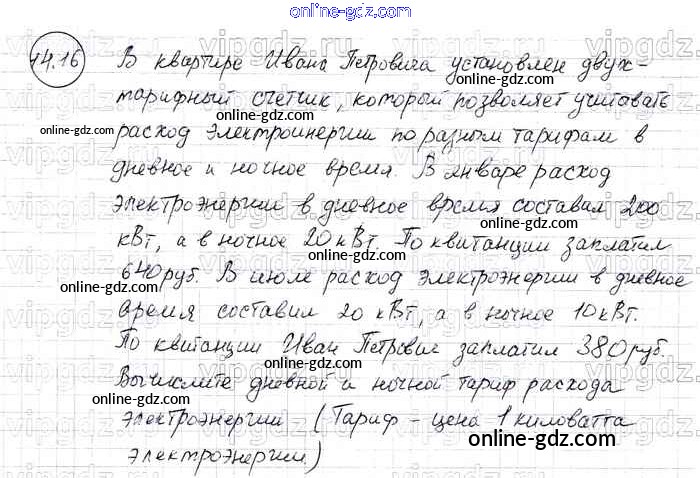 online-gdz.com
14.16 В квартире Ивана Петровича установлен двух-
тарифный счетчик, который позволяет учитавать
online-gdz.com
расход электроинергии по разным тарифам в
дневное и ночное время. В январе расход
online-gdz.com
электроэнергии в дневное время составил 200
online-gdz.com
кВт, а в ночное 20 кВт. По квитанции заплатил
640 руб. В июле расход электроэнергии в дневное
online-gdz.com
время составил 20 кВт, а в ночное 10 кВт.
online-gdz.com
По квитанции Иван Петрович заплатил 380 руб.
online-gdz.com
Вычислите дневной и ночной тариф расхода
электроэнергии (Тариф - цена 1 киловатта
online-gdz.com
электроэнергии.)